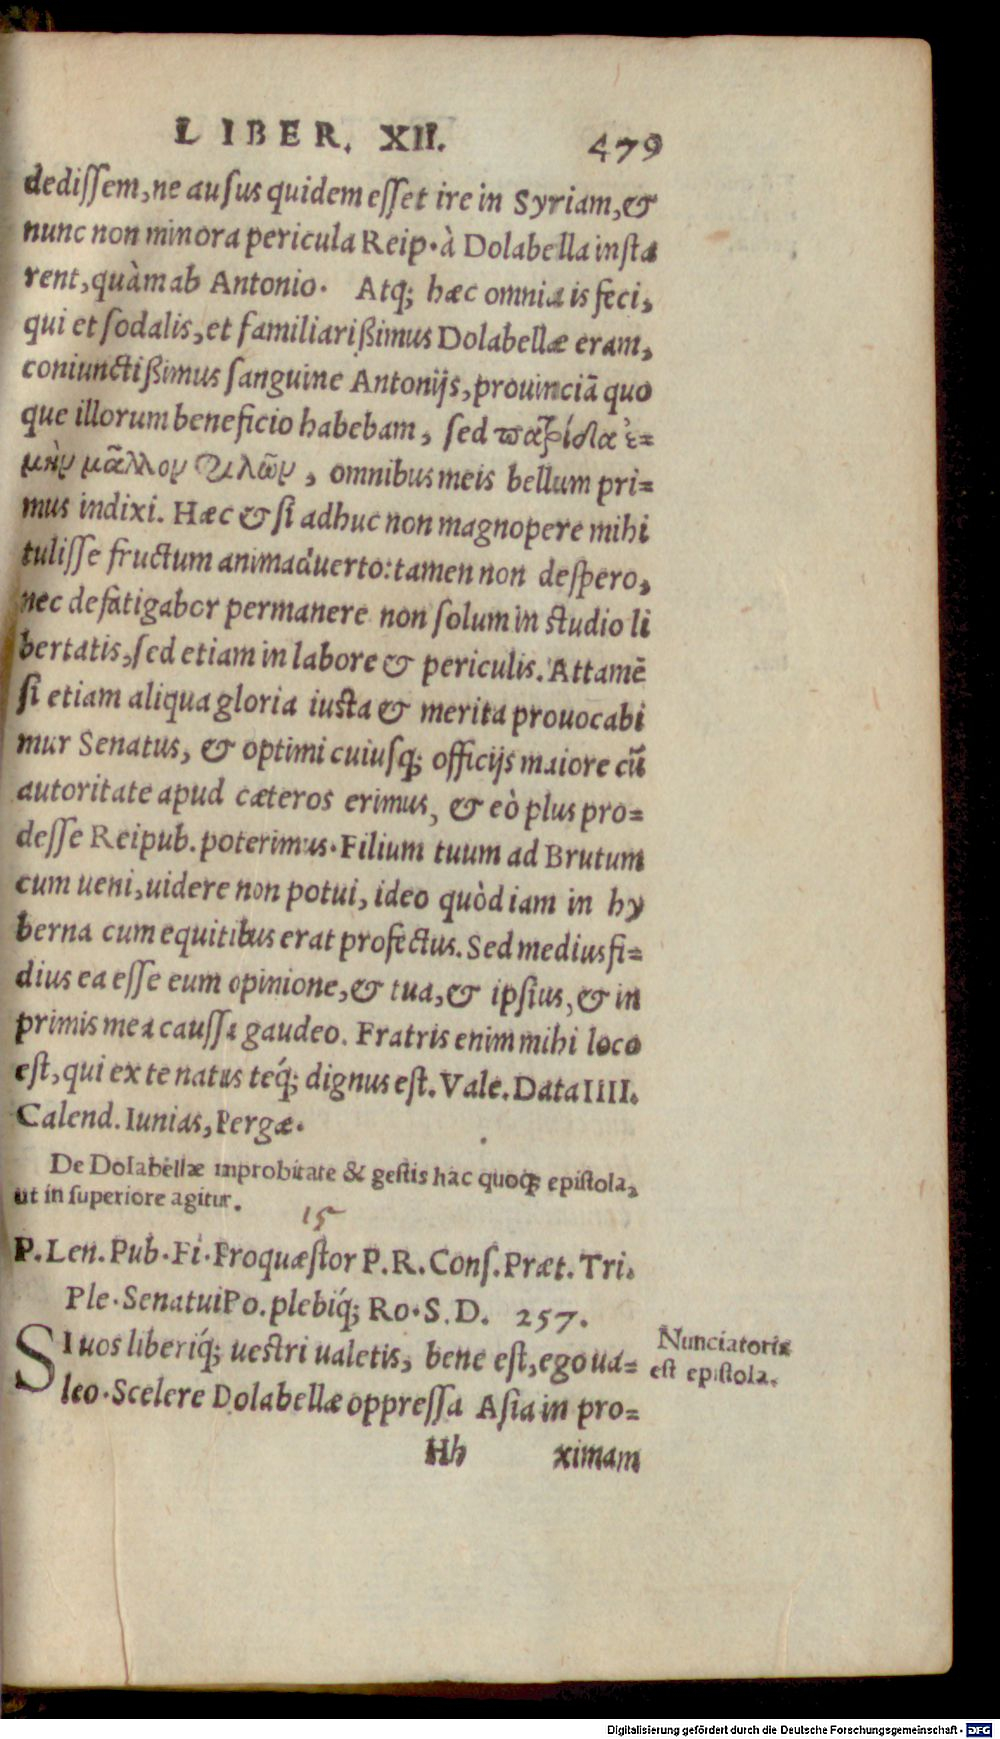 LIBER. XII. 479
dedissem, ne ausus quidem esset ire in Syriam, &
nunc non minora pericula Reip. à Dolabella insta
rent, quàm ab Antonio. Atq; hæc omnia is feci,
qui et sodalis, et familiarißimus Dolabellæ eram,
coniunctißimus sanguine Antonijs, prouinciā quo
que illorum beneficio habebam, sed παΤρίδα ἐ=
μὴν μᾶλλον φιλῶν, omnibus meis bellum pri=
mus indixi. Hæc & si adhuc non magnopere mihi
tulisse fructum animaduerto: tamen non despero,
nec defatigabor permanere non solum in studio li
bertatis, sed etiam in labore & periculis. Attamē
si etiam aliqua gloria iusta & merita prouocabi
mur Senatus, & optimi cuiusq; officijs maiore cū
autoritate apud cæteros erimus, & eò plus pro=
desse Reipub. poterimus. Filium tuum ad Brutum
cum ueni, uidere non potui, ideo quòd iam in hy
berna cum equitibus erat profectus. Sed medius fi=
dius ea esse eum opinione, & tua, & ipsius, & in
primis mea caussa gaudeo. Fratris enim mihi loco
est, qui ex te natus teq́; dignus est. Vale. Data IIII.
Calend. Iunias, Pergæ.
De Dolabellæ improbitate & gestis hac quoq; epistola,
ut in superiore agitur.
15
P. Len. Pub. Fi. Proquæstor P. R. Cons. Præt. Tri.
Ple. Senatui Po. plebiq́; Ro. S. D. 257.
SI uos liberiq́; uestri ualetis, bene est, ego ua=
leo. Scelere Dolabellæ oppressa Asia in pro=
Nunciatoria
est epistola.
Hh ximam
Digitalisierung gefördert durch die Deutsche Forschungsgemeinschaft - DFG